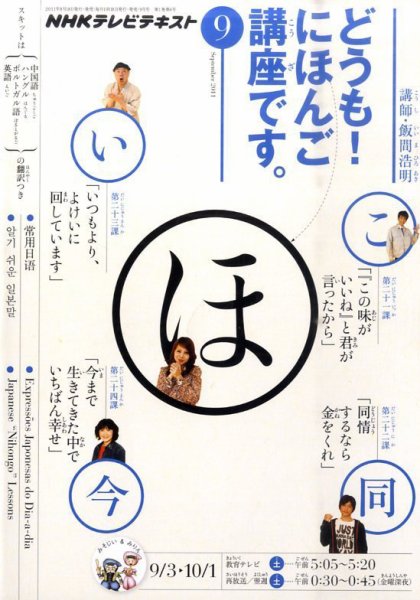 NHKテレビテキスト
どうも!
にほんご
講座です。
こうざ
9
September 2011
講師・飯間浩明
こうし・いいまひろあき
スキットは
中国語
ハングル
ポルトガル語
英語
の翻訳つき
●常用日语
●알기 쉬운 일본말
●Expressões Japonesas do Dia-a-dia
●Japanese "Nihongo" Lessons
こ
第二十一課
「『この味が
いいね』と君が
言ったから」
同
第二十二課
「同情
するなら
金をくれ」
い
第二十三課
「いつもより、
よけいに
回しています」
今
第二十四課
「今まで
生きてきた中で
いちばん幸せ」
ほ
みそじい & みりん
JUST
WORLD
9/3・10/1
教育テレビ 土 午前 5:05〜5:20
再放送/翌週 土 午前 0:30〜0:45(金曜深夜)